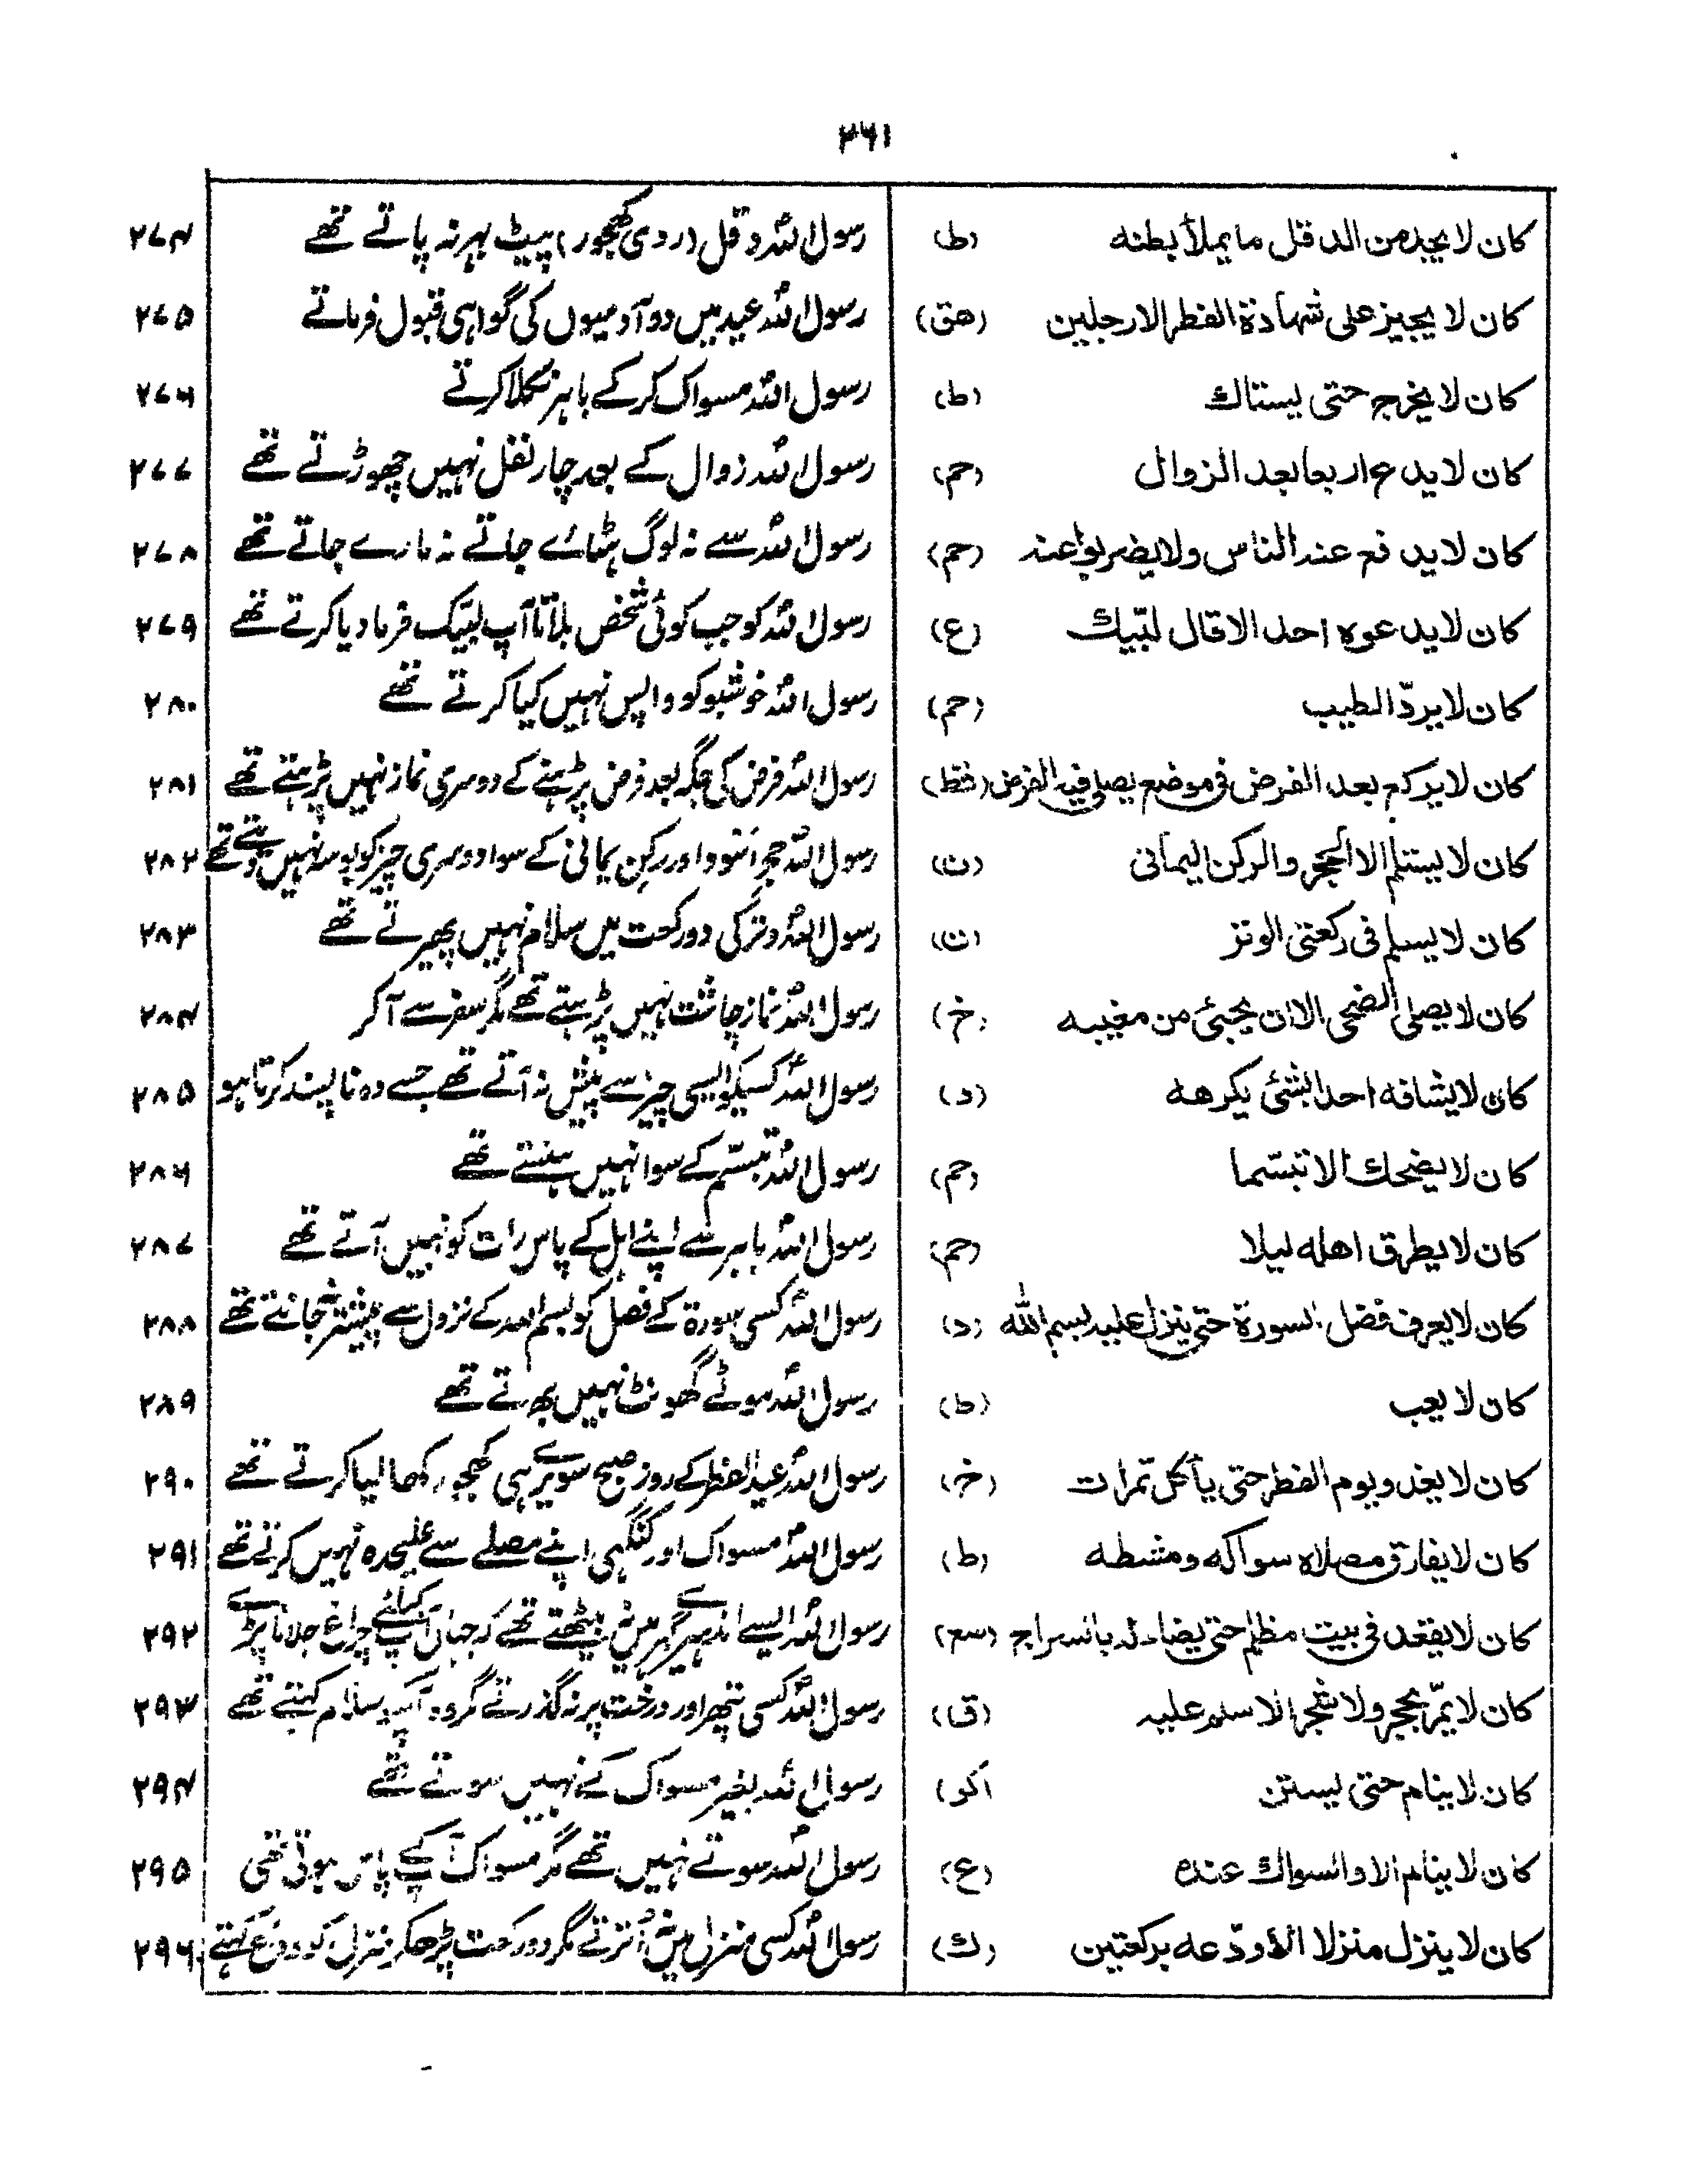 ۳۶۱
کان لا یجد من الدقل ما یملأ بطنه (ط) رسول اللہ دقل (ردی کھجور) پیٹ بہر نہ پاتے تھے ۲۷۴
کان لا یجیز علی شهادة الفطر الا رجلین (هق) رسول اللہ عید میں دو آدمیوں کی گواہی قبول فرماتے ۲۷۵
کان لا یخرج حتی یستاك (ط) رسول اللہ مسواک کرکے باہر نکلا کرتے ۲۷۶
کان لا یدع اربعا بعد الزوال (حم) رسول اللہ زوال کے بعد چار نفل نہیں چھوڑتے تھے ۲۷۷
کان لا یدفع عند الناس ولا یضربوا عند (حم) رسول اللہ سے نہ لوگ ہٹائے جاتے نہ مارے جاتے تھے ۲۷۸
کان لا یدعوه احد الا قال لبّیك (ع) رسول اللہ کو جب کوئی شخص بلاتا آپ لبّیک فرما دیا کرتے تھے ۲۷۹
کان لا یردّ الطیب (حم) رسول اللہ خوشبو کو واپس نہیں کیا کرتے تھے ۲۸۰
کان لا یرکع بعد الفرض فی موضع یصلی فیه الفرض (قط) رسول اللہ فرض کی جگہ بعد فرض پڑہنے کے دوسری نماز نہیں پڑہتے تھے ۲۸۱
کان لا یستلم الا الحجر والرکن الیمانی (ن) رسول اللہ حجر اسود اور رکن یمانی کے سوا دوسری چیز کو بوسہ نہیں دیتے تھے ۲۸۲
کان لا یسلم فی رکعتی الوتر (ن) رسول اللہ وتر کی دو رکعت میں سلام نہیں پھیرتے تھے ۲۸۳
کان لا یصلی الضحی الا ان یجیٔ من مغیبه (خ) رسول اللہ نماز چاشت نہیں پڑہتے تھے مگر سفر سے آکر ۲۸۴
کان لا یشافه احدا بشیٔ یکرهه (د) رسول اللہ کسیکو ایسی چیز سے پیش نہ آتے تھے جسے وہ ناپسند کرتا ہو ۲۸۵
کان لا یضحك الا تبسّما (حم) رسول اللہ تبسّم کے سوا نہیں ہنستے تھے ۲۸۶
کان لا یطرق اهله لیلا (حم) رسول اللہ باہر سے اپنے اہل کے پاس رات کو نہیں آتے تھے ۲۸۷
کان لا یعرف فضل السورة حتی ینزل علیه بسم الله (د) رسول اللہ کسی سورۃ کے فصل کو بسم اللہ کے نزول سے پیشتر نہ جانتے تھے ۲۸۸
کان لا یعب (ط) رسول اللہ موٹے گھونٹ نہیں بھرتے تھے ۲۸۹
کان لا یغدو یوم الفطر حتی یأکل تمرات (خ) رسول اللہ عید الفطر کے روز صبح سویرے ہی کھجور کھا لیا کرتے تھے ۲۹۰
کان لا یفارق مصلاه سواکه ومشطه (ط) رسول اللہ مسواک اور کنگہی اپنے مصلے سے علیحدہ نہیں کرتے تھے ۲۹۱
کان لا یقعد فی بیت مظلم حتی یضاء له بالسراج (سع) رسول اللہ ایسے اندہیرے گہر میں نہ بیٹھتے تھے کہ جہاں آپ کیلئے چراغ جلانا پڑے ۲۹۲
کان لا یمّر بحجر ولا شجر الا سلم علیه (ق) رسول اللہ کسی پتھر اور درخت پر نہ گذرتے مگر وہ آپ پر سلام کہتے تھے ۲۹۳
کان لا ینام حتی یستن (کو) رسول اللہ بغیر مسواک کے نہیں سوتے تھے ۲۹۴
کان لا ینام الا والسواك عنده (ع) رسول اللہ سوتے نہیں تھے مگر مسواک آپ کے پاس ہوتی تھی ۲۹۵
کان لا ینزل منزلا الا ودّعه برکعتین (ك) رسول اللہ کسی منزل میں نہ اُترتے مگر دو رکعت پڑھکر منزل کو وداع کہتے ۲۹۶